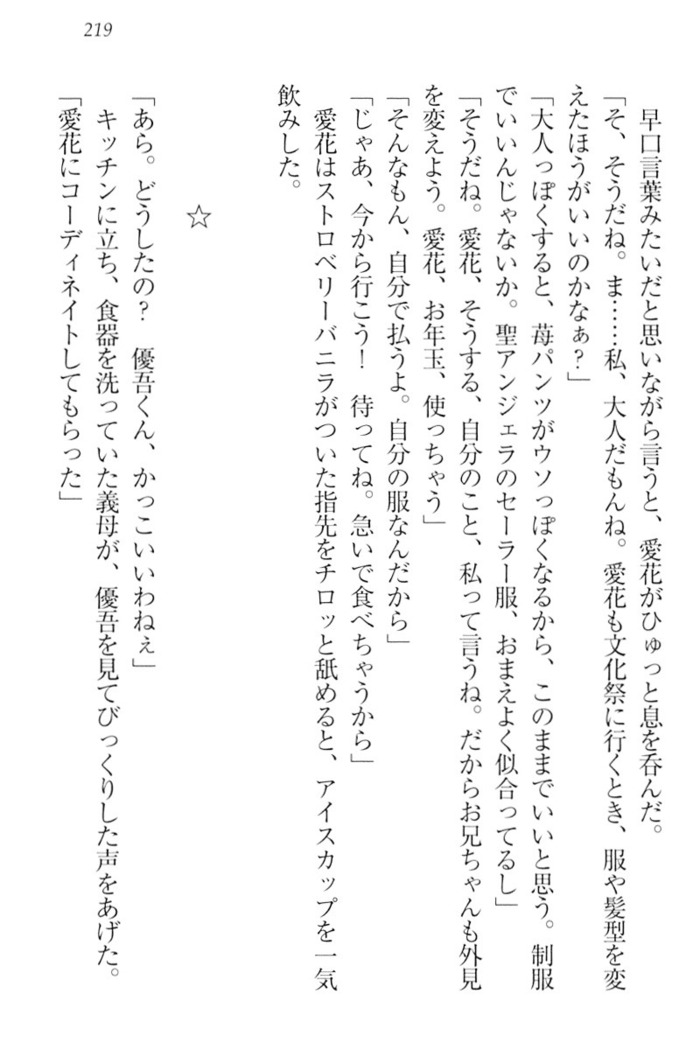 219
早口言葉みたいだと思いながら言うと、愛花がひゅっと息を呑んだ。
「そ、そうだね。ま……私、大人だもんね。愛花も文化祭に行くとき、服や髪型を変
えたほうがいいのかなぁ？」
「大人っぽくすると、苺パンツがウソっぽくなるから、このままでいいと思う。制服
でいいんじゃないか。聖アンジェラのセーラー服、おまえよく似合ってるし」
「そうだね。愛花、そうする、自分のこと、私って言うね。だからお兄ちゃんも外見
を変えよう。愛花、お年玉、使っちゃう」
「そんなもん、自分で払うよ。自分の服なんだから」
「じゃあ、今から行こう！　待ってね。急いで食べちゃうから」
愛花はストロベリーバニラがついた指先をチロッと舐めると、アイスカップを一気
飲みした。
☆
「あら。どうしたの？　優吾くん、かっこいいわねぇ」
キッチンに立ち、食器を洗っていた義母が、優吾を見てびっくりした声をあげた。
「愛花にコーディネイトしてもらった」